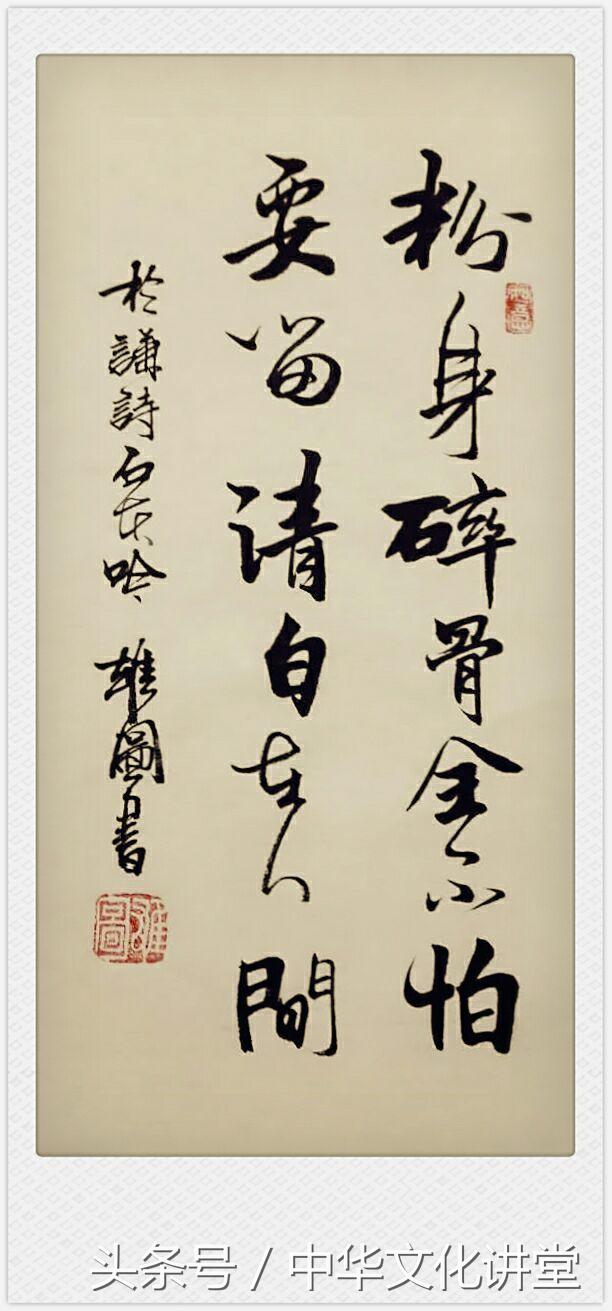 粉身碎骨全不怕
要留清白在人間
於謙詩石灰吟 雄圖書
头条号 / 中华文化讲堂